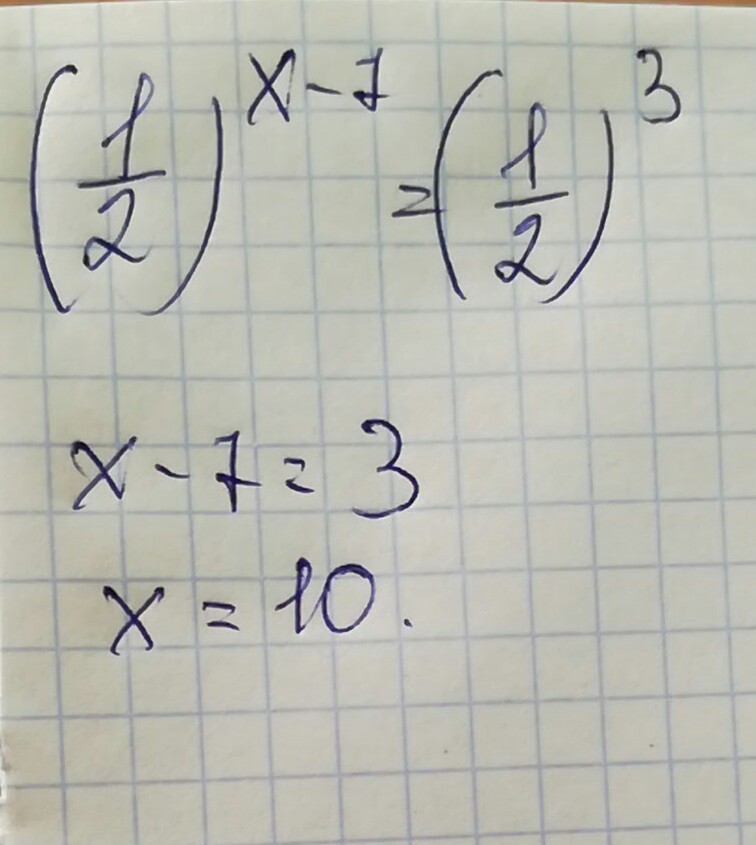 (1/2)^(x-7) = (1/2)^3
x - 7 = 3
x = 10.